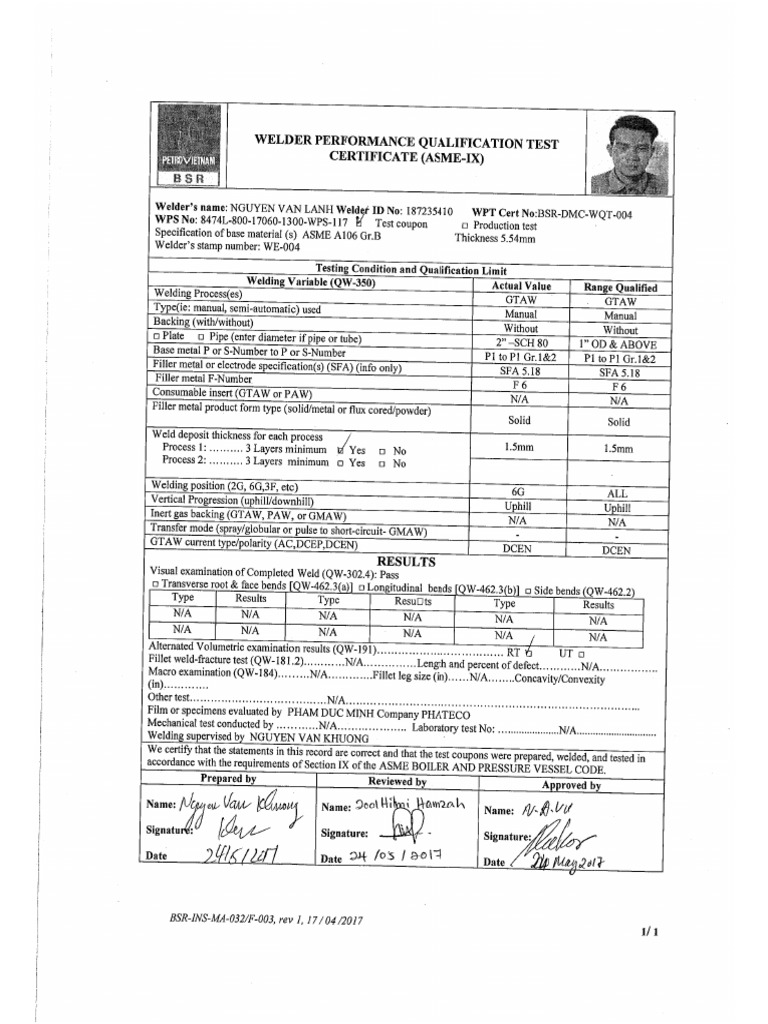 PETROVIETNAM
BSR
WELDER PERFORMANCE QUALIFICATION TEST
CERTIFICATE (ASME-IX)
Welder's name: NGUYEN VAN LANH Welder ID No: 187235410 WPT Cert No:BSR-DMC-WQT-004
WPS No: 8474L-800-17060-1300-WPS-117 ☑ Test coupon □ Production test
Specification of base material (s) ASME A106 Gr.B Thickness 5.54mm
Welder's stamp number: WE-004
Testing Condition and Qualification Limit
Welding Variable (QW-350) Actual Value Range Qualified
Welding Process(es) GTAW GTAW
Type(ie: manual, semi-automatic) used Manual Manual
Backing (with/without) Without Without
□ Plate □ Pipe (enter diameter if pipe or tube) 2" –SCH 80 1" OD & ABOVE
Base metal P or S-Number to P or S-Number P1 to P1 Gr.1&2 P1 to P1 Gr.1&2
Filler metal or electrode specification(s) (SFA) (info only) SFA 5.18 SFA 5.18
Filler metal F-Number F 6 F 6
Consumable insert (GTAW or PAW) N/A N/A
Filler metal product form type (solid/metal or flux cored/powder) Solid Solid
Weld deposit thickness for each process
Process 1: .......... 3 Layers minimum ☑ Yes □ No 1.5mm 1.5mm
Process 2: .......... 3 Layers minimum □ Yes □ No
Welding position (2G, 6G,3F, etc) 6G ALL
Vertical Progression (uphill/downhill) Uphill Uphill
Inert gas backing (GTAW, PAW, or GMAW) N/A N/A
Transfer mode (spray/globular or pulse to short-circuit- GMAW) - -
GTAW current type/polarity (AC,DCEP,DCEN) DCEN DCEN
RESULTS
Visual examination of Completed Weld (QW-302.4): Pass
□ Transverse root & face bends [QW-462.3(a)] □ Longitudinal bends [QW-462.3(b)] □ Side bends (QW-462.2)
Type Results Type Resu□ts Type Results
N/A N/A N/A N/A N/A N/A
N/A N/A N/A N/A N/A N/A
Alternated Volumetric examination results (QW-191)................................ RT ☑ UT □
Fillet weld-fracture test (QW-181.2)............N/A...............Length and percent of defect............N/A................
Macro examination (QW-184).........N/A.............Fillet leg size (in)......N/A........Concavity/Convexity
(in).............
Other test.......................................N/A................................................................................
Film or specimens evaluated by PHAM DUC MINH Company PHATECO
Mechanical test conducted by ............N/A.................... Laboratory test No: .......................N/A....................
Welding supervised by NGUYEN VAN KHUONG
We certify that the statements in this record are correct and that the test coupons were prepared, welded, and tested in
accordance with the requirements of Section IX of the ASME BOILER AND PRESSURE VESSEL CODE.
Prepared by Reviewed by Approved by
Name: Nguyen Van Khuong Name: Hamzah Name: N.A.VU
Signature: Signature: Signature:
Date 24/5/2017 Date 24/05/2017 Date 24 May 2017
BSR-INS-MA-032/F-003, rev 1, 17/04/2017
1/1